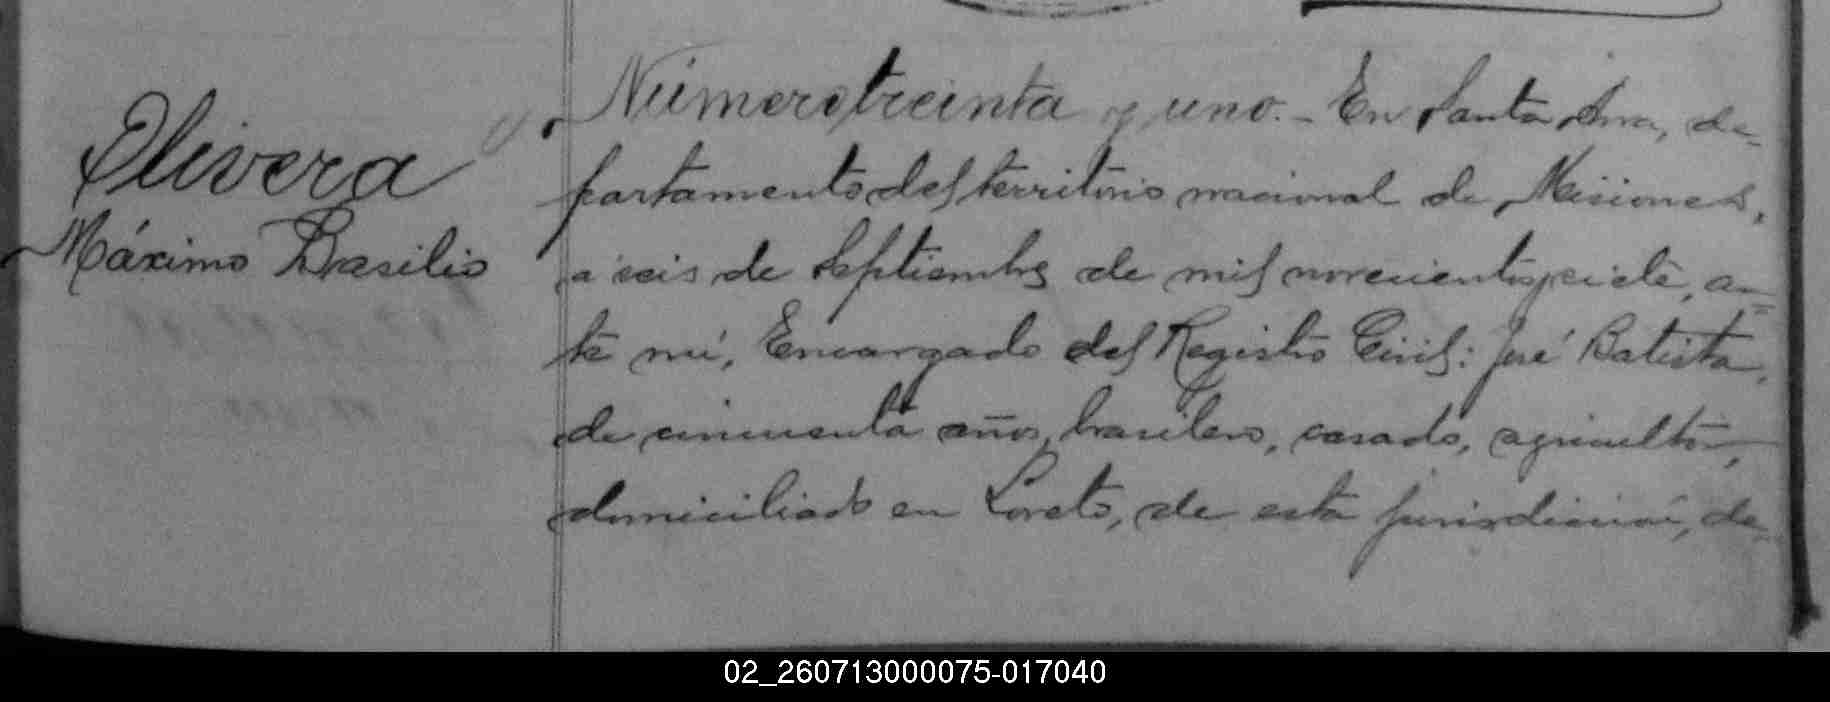 Olivera
Máximo Basilio
Número treinta y uno. - En Santa Ana, de-
partamento del territorio nacional de Misiones,
a seis de Septiembre de mil novecientos siete, an-
te mí, Encargado del Registro Civil: José Batista,
de cincuenta años, brasilero, casado, agricultor,
domiciliado en Loreto, de esta jurisdicción, de-
02_260713000075-017040